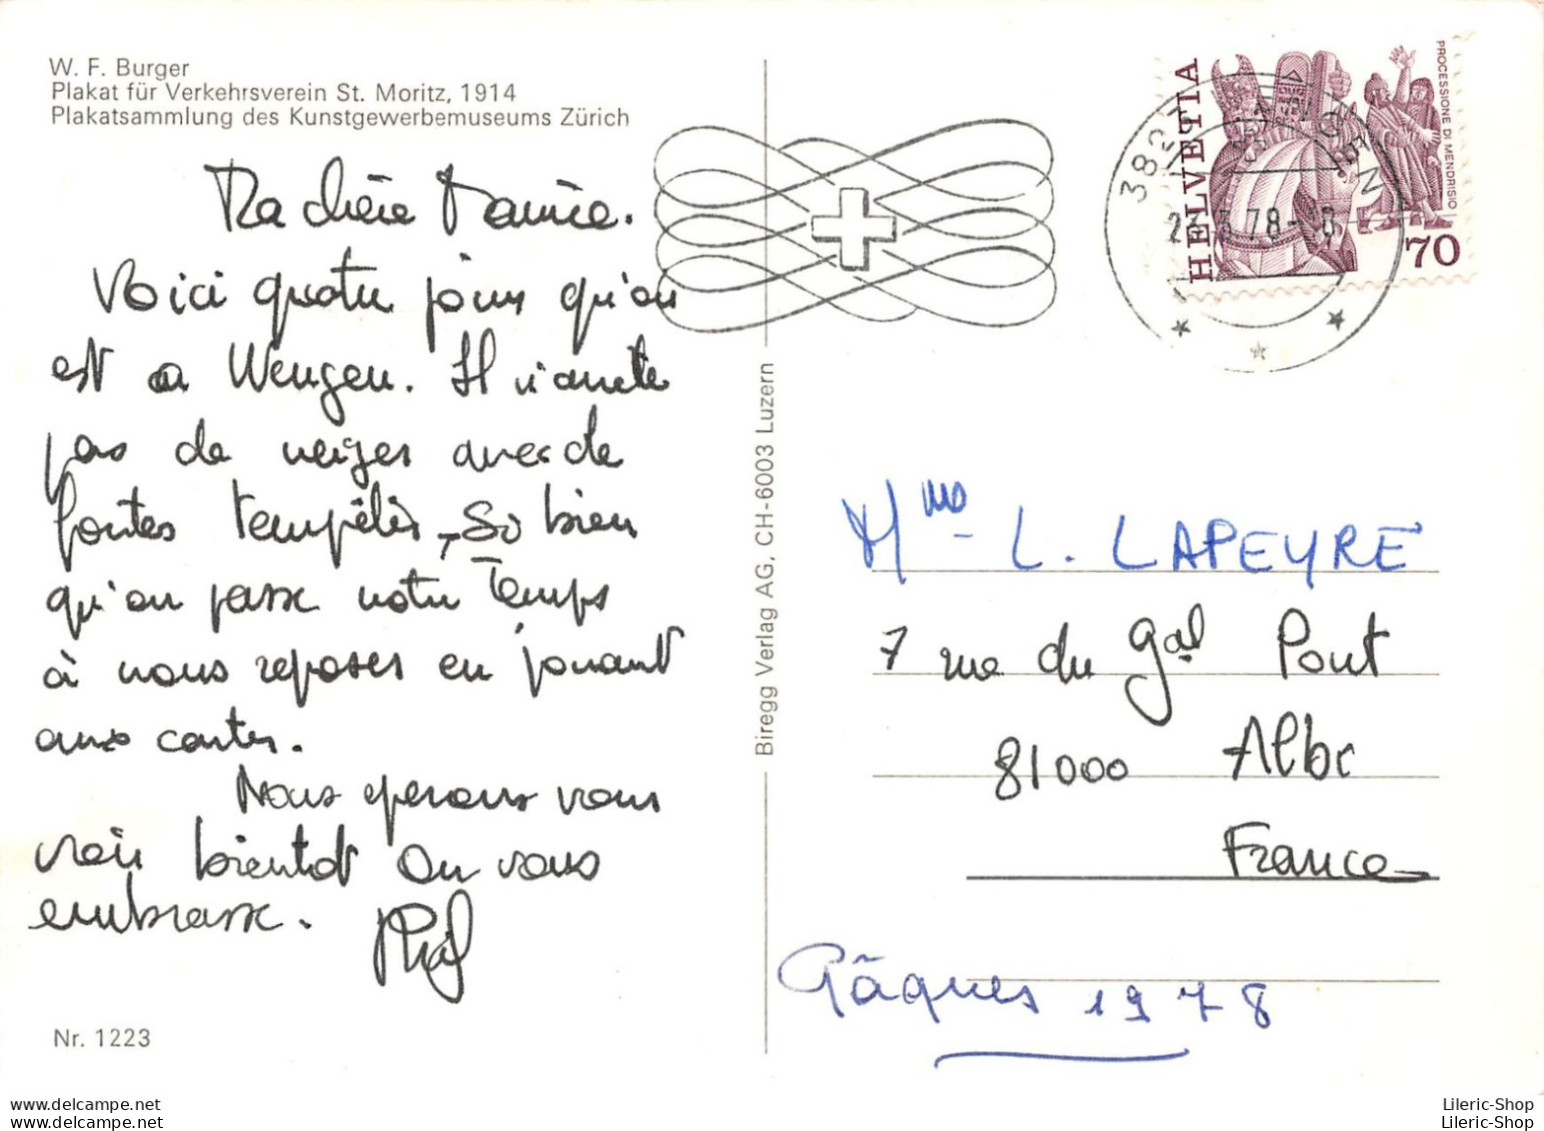 W. F. Burger
Plakat für Verkehrsverein St. Moritz, 1914
Plakatsammlung des Kunstgewerbemuseums Zürich
Ma chère
Voici quatre jours qu'on
est à Wengen. Il n'arrête
pas de neiger avec de
fortes tempêtes, si bien
qu'on passe notre temps
à nous reposer en jouant
aux cartes.
Nous espérons vous
voir bientôt On vous
embrasse.
Nr. 1223
Biregg Verlag AG, CH-6003 Luzern
HELVETIA
PROCESSIONE DI MENDRISIO
70
3823 WENGEN
78-18
Mme L. LAPEYRE
7 rue du Gal Pont
81000 Albi
France
Pâques 1978
Lileric-Shop
www.delcampe.net
Lileric-Shop
www.delcampe.net